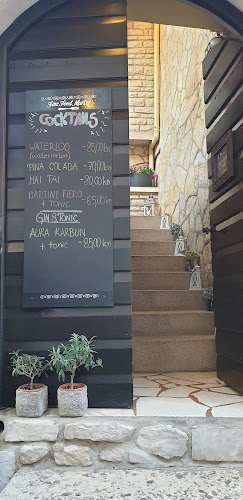 Fine Food Mario
COCKTAILS
WATERLOO -85,00kn
(watermelon)
PINA COLADA -70,00kn
MAI TAI -80,00kn
MARTINI FIERO -65,00kn
+ TONIC
GIN & TONIC
AURA KARBUN
+ tonic -85,00kn